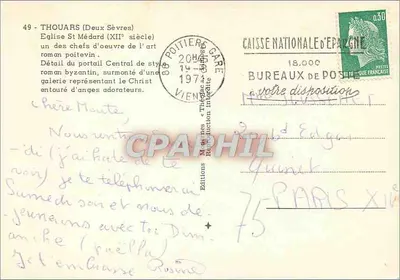 49 - THOUARS (Deux Sèvres)
Eglise St Médard (XII° siècle)
un des chefs d'oeuvre de l'art
roman poitevin.
Détail du portail Central de
roman byzantin, surmonté d'une
galerie représentant le Christ
entouré d'anges adorateurs.
86 POITIERS GARE
1971
VIENNE
CAISSE NATIONALE d'EPARGNE
18.000
BUREAUX DE POSTE
à votre disposition
0,30
REPUBLIQUE FRANCAISE
Editions
Reproduction interdite
CPARPHIL
chère
Nous
di (j'ai hâte de te
voir) je te téléphonerai
Samedi soir et nous dé-
jeunerons avec toi Dim-
anche
Je t'embrasse
Edgar
Quinet
75 PARIS XIe